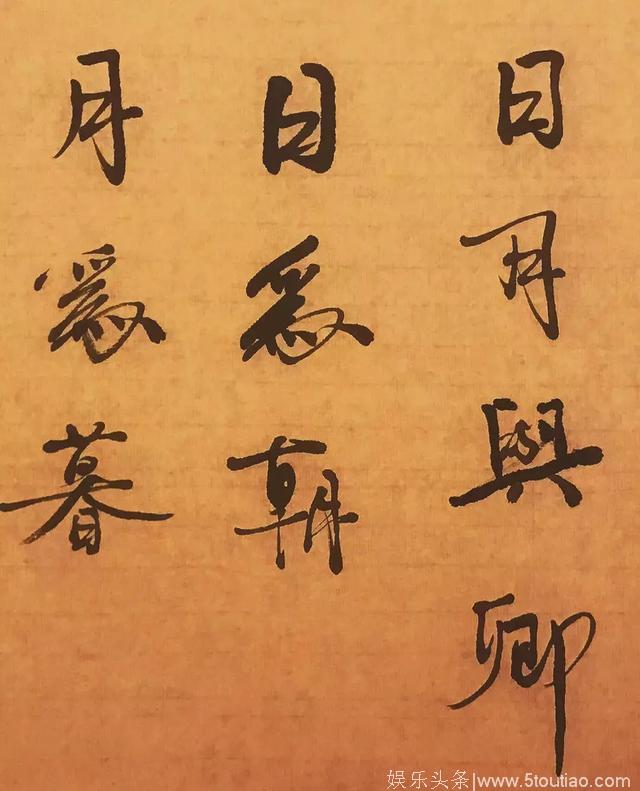 日月與卿
日為朝
月為暮
娱乐头条|www.5toutiao.com